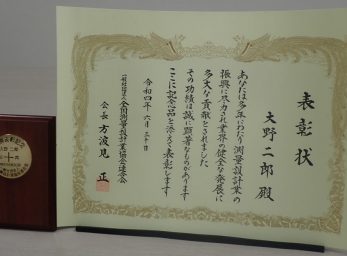 表彰状
大野二郎殿
あなたは多年にわたり測量設計業の
振興に尽力され業界の健全な発展に
多大な貢献をされました
その功績は誠に顕著なものがあります
ここに記念品を添えて表彰します
令和四年六月三十日
一般社団法人全国測量設計業協会連合会
会長 方波見 正